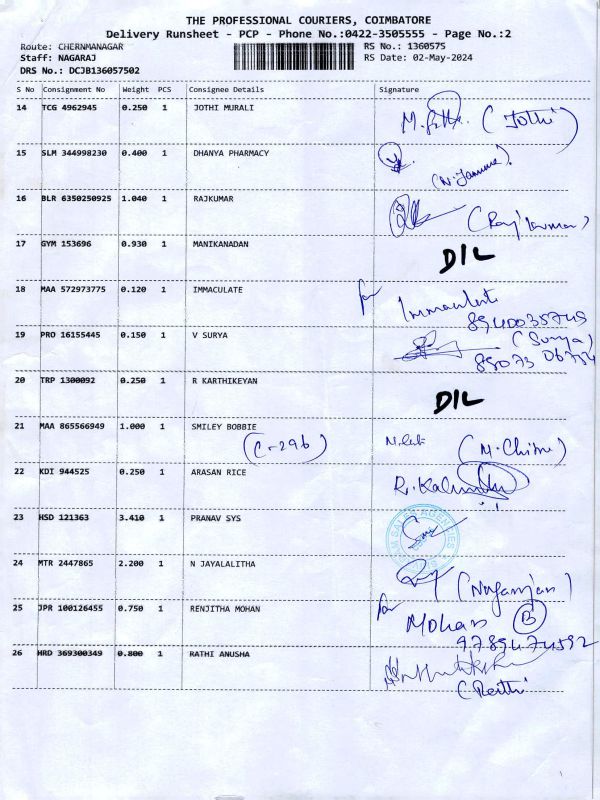 THE PROFESSIONAL COURIERS, COIMBATORE
Delivery Runsheet - PCP - Phone No.:0422-3505555 - Page No.:2
Route: CHERNMANAGAR RS No.: 136057S
Staff: NAGARAJ RS Date: 02-May-2024
DRS No.: DCJB136057502
S No Consignment No Weight PCS Consignee Details Signature
14 TCG 4962945 0.250 1 JOTHI MURALI (Jothi)
15 SLM 344998230 0.400 1 DHANYA PHARMACY
16 BLR 6350250925 1.040 1 RAJKUMAR (Rajkumar)
17 GYM 153696 0.930 1 MANIKANADAN D/L
18 MAA 572973775 0.120 1 IMMACULATE for Immaculate
8940035749
19 PRO 16155445 0.150 1 V SURYA (Surya)
20 TRP 1300092 0.250 1 R KARTHIKEYAN D/L
21 MAA 865566949 1.000 1 SMILEY BOBBIE
(C-296)
22 KDI 944525 0.250 1 ARASAN RICE
23 HSD 121363 3.410 1 PRANAV SYS
24 MTR 2447865 2.200 1 N JAYALALITHA
25 JPR 100126455 0.750 1 RENJITHA MOHAN for Mohan B
9789474592
26 HRD 369300349 0.800 1 RATHI ANUSHA